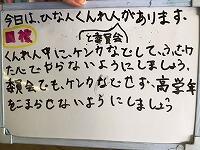 今日は、ひなんくんれんがあります。
目標
と委員会
くんれん中に、ケンカなどして、ふざけ
たりでやらないようにしましょう。
委員会でも、ケンカなどせず、高学年
をこまらせないようにしましょう